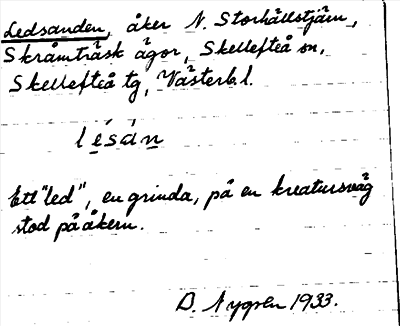 Ledsanden, åker N. Storhällstjärn,
Skråmträsk ägor, Skellefteå sn,
Skellefteå tg, Västerb. l.
lésán
Ett "led", en grinda, på en kreatursväg
stod på åkern.
D. Nygren 1933.